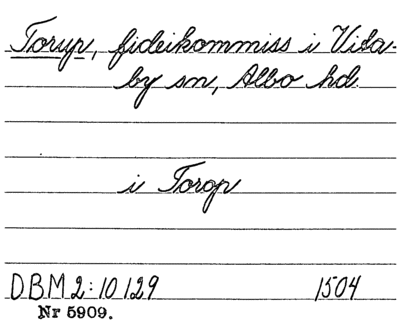 Torup, fideikommiss i Vita-
by sn, Albo hd.
i Torop
DBM 2:10129 1504
Nr 5909.